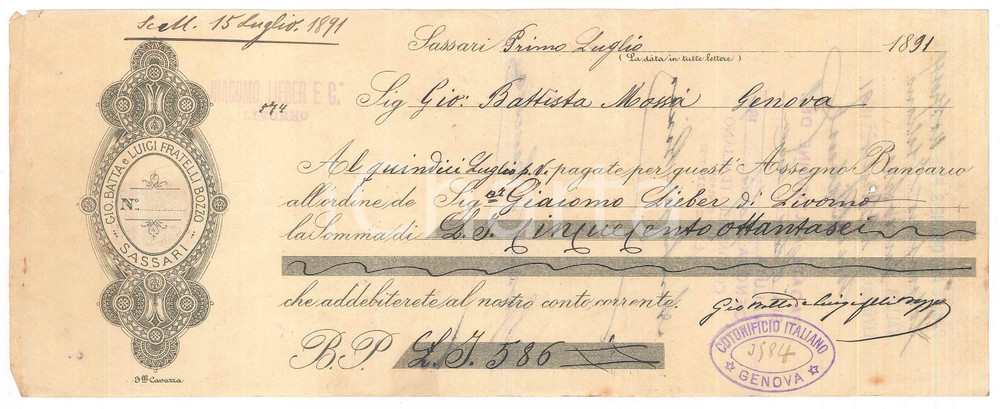 Scad. 15 Luglio. 1891
Sassari Primo Luglio 1891
(La data in tutte lettere)
GIACOMO LIEBER E C.º
LIVORNO
874
Sig Gio: Battista Mossá Genova
Al quindici Luglio p.v. pagate per quest' Assegno Bancario
all'ordine de Sigr Giacomo Lieber di Livorno
la Somma di L. I. Cinquecento ottantasei
che addebiterete al nostro conto corrente.
Gio Batta e Luigi flli Bozzo
B.P. L. I. 586
GIO. BATTA e LUIGI FRATELLI BOZZO
Nº
SASSARI
Flli Cavazza
COTONIFICIO ITALIANO
3584
GENOVA